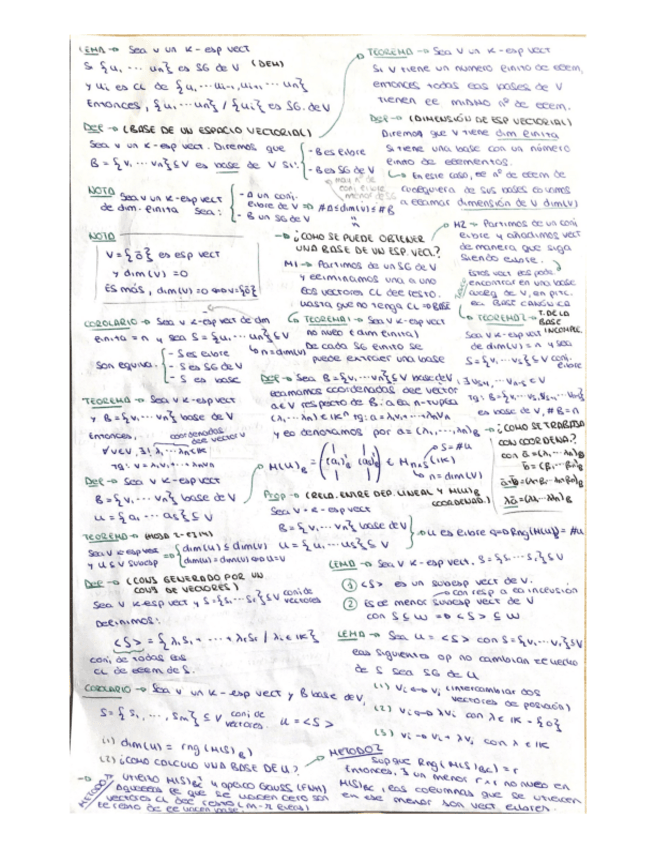 LEMA → Sea V un K-esp vect
Si {u1, ... un} es SG de V (DEM)
y ui es CL de {u1, ... ui-1, ui+1, ... un}
Entonces, {u1, ... un} / {ui} es SG. de V
DEF → (BASE DE UN ESPACIO VECTORIAL)
Sea V un K-esp vect. Diremos que
B = {v1, ... vn} ⊆ V es base de V si:
- B es libre
- B es SG de V
NOTA Sea V un K-esp vect
de dim. finita Sea:
- A un conj.
libre de V
- B un SG de V
⇒ #A ≤ dim(V) ≤ #B
NOTA
V = {0} es esp vect
y dim(V) = 0
Es más, dim(V)=0 ⇔ V={0}
COROLARIO → Sea V K-esp vect de dim
finita = n y sea S = {u1, ... un} ⊆ V
Son equiva.
- S es libre
- S es SG de V
- S es base
n = dim(V)
TEOREMA → Sea V K-esp vect
y B = {v1, ... vn} base de V
Entonces,
coordenadas
del vector v
∀v∈V, ∃! λ1, ... λn ∈ K
tq: v = λ1v1 + ... + λnvn
DEF → Sea V K-esp vect
B = {v1, ... vn} base de V
U = {a1, ... as} ⊆ V
TEOREMA →
Sea V K esp vect
y U ⊆ V subesp
⇒ dim(U) ≤ dim(V)
dim(U) = dim(V) ⇔ U = V
DEF → (CONJ GENERADO POR UN
CONJ DE VECTORES)
Sea V K-esp vect y S = {s1, ... sr} ⊆ V conj de
vectores
Definimos:
<S> = {λ1s1 + ... + λrsr / λi ∈ K}
conj. de todas las
CL de elem de S.
COROLARIO → Sea V un K-esp vect y B base de V,
S = {s1, ..., sm} ⊆ V conj de
vectores. U = <S>
(1) dim(U) = rng (M(S)B)
(2) ¿Cómo calculo una base de U?
TEOREMA → Sea V un K-esp vect
Si V tiene un número finito de elem,
entonces todas las bases de V
tienen el mismo nº de elem.
DEF → (DIMENSIÓN DE ESP VECTORIAL)
Diremos que V tiene dim finita
si tiene una base con un número
finito de elementos.
En este caso, el nº de elem de
cualquiera de sus bases lo vamos
a llamar dimensión de V dim(V)
→ ¿CÓMO SE PUEDE OBTENER
UNA BASE DE UN ESP. VECT?
M1 → Partimos de un SG de V
y eliminamos uno a uno
los vectores CL del resto.
Hasta que no tenga CL ⇒ BASE
M2 → Partimos de un conj
libre y añadimos vect
de manera que siga
siendo libre.
BASE CANÓNICA
TEOREMA1 → Sea V K-esp vect
no nulo (dim finita)
De cada SG finito se
puede extraer una base
TEOREMA2 → T. DE LA
BASE
INCOMPL.
Sea V K-esp vect
de dim(V) = n y sea
S = {v1, ... vs} ⊆ V conj.
libre
∃ vs+1, ... vn ∈ V
tq: {v1, ... vs, vs+1, ... vn}
es base de V, #B = n
DEF → Sea B = {v1, ... vn} ⊆ V base de V,
llamamos coordenadas del vector
a ∈ V respecto de B. a la n-tupla
(λ1, ... λn) ∈ K^n tq: a = λ1v1 + ... + λnvn
y lo denotamos por a = (λ1, ..., λn)B
→ ¿CÓMO SE TRABAJA
CON COORDENA.?
M(U)B = ((a1)B (as)B) ∈ Mn×s(K)
s = #U
n = dim(V)
PROP → (RELA. ENTRE DEP. LINEAL Y M(U)B
COORDENAD.)
Sea V K-esp vect
B = {v1, ... vn} base de V
U = {u1, ... us} ⊆ V
U es libre ⇔ Rng(M(U)B) = #U
LEMA → Sea V K-esp vect. S = {s1, ... sr} ⊆ V
① <S> es un subesp vect de V.
con resp a la inclusión
② Es el menor subesp vect de V
con S ⊆ W ⇒ <S> ⊆ W
LEMA → Sea U = <S> con S = {v1, ... vr} ⊆ V
las siguientes op no cambian el hecho
de S sea SG de U
(1) vi ↔ vj (intercambiar dos
vectores de posición)
(2) vi → λvi con λ ∈ K - {0}
(3) vi → vi + λvj con λ ∈ K
METODO2
Sup que Rng(M(S)BC) = r
Entonces, ∃ un menor r×r no nulo en
M(S)BC, las columnas que se utilicen
en ese menor son vect libres.